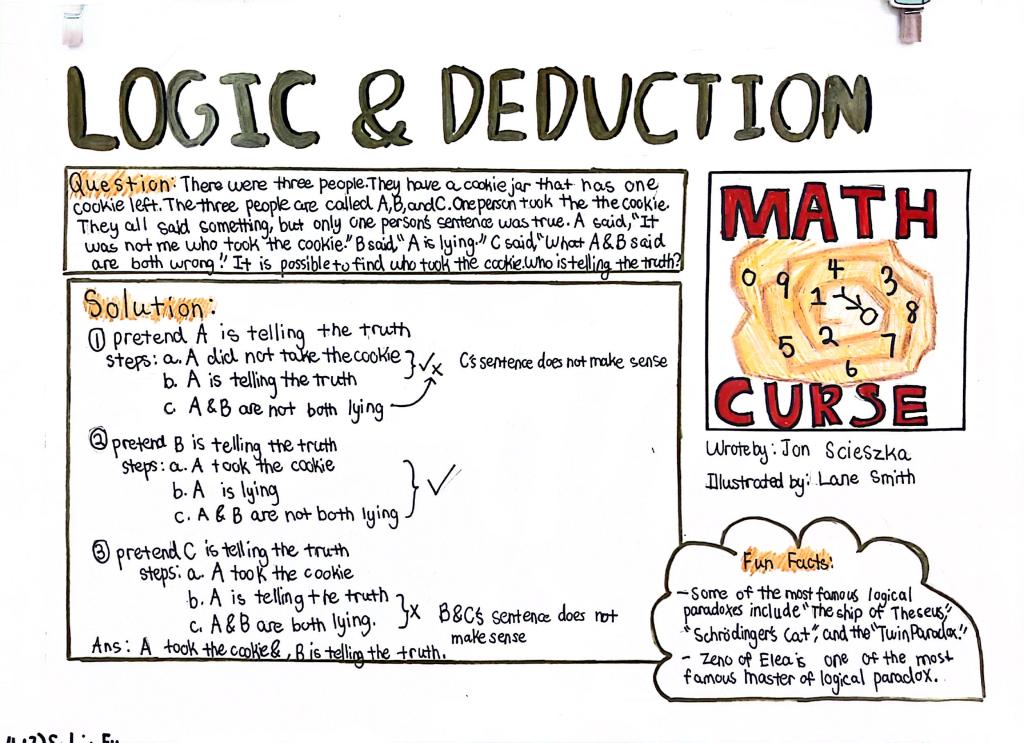 LOGIC & DEDUCTION
Question: There were three people. They have a cookie jar that has one
cookie left. The three people are called A, B, and C. One person took the the cookie.
They all said something, but only one person's sentence was true. A said, "It
was not me who took the cookie." B said, "A is lying." C said, "What A & B said
are both wrong." It is possible to find who took the cookie. Who is telling the truth?
Solution:
① pretend A is telling the truth
steps: a. A did not take the cookie
b. A is telling the truth
c. A & B are not both lying
C's sentence does not make sense
② pretend B is telling the truth
steps: a. A took the cookie
b. A is lying
c. A & B are not both lying
③ pretend C is telling the truth
steps: a. A took the cookie
b. A is telling the truth
c. A & B are both lying.
B & C's sentence does not
make sense
Ans: A took the cookie &, B is telling the truth.
MATH
0 9 4 3
1 8
5 2 7
6
CURSE
Wrote by: Jon Scieszka
Illustrated by: Lane Smith
Fun Facts:
- Some of the most famous logical
paradoxes include "The ship of Theseus,"
"Schrödinger's Cat", and the "Twin Paradox."
- Zeno of Elea is one of the most
famous master of logical paradox.